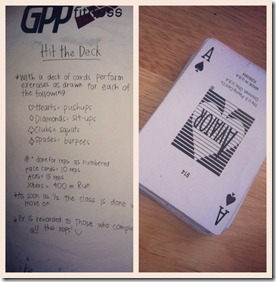 GPP fitness
Hit the Deck
*With a deck of cards perform
exercises as drawn for each of
the following
♡ Hearts= pushups
◇ Diamonds= sit-ups
♧ Clubs= squats
♤ Spades= burpees
* done for reps as numbered
face cards= 10 reps
Aces= 15 reps
Jokers= 400 m Run
*As soon as 1/2 the class is done
move on
is rewarded to those who
all the reps!
A
AVIATOR
914
A